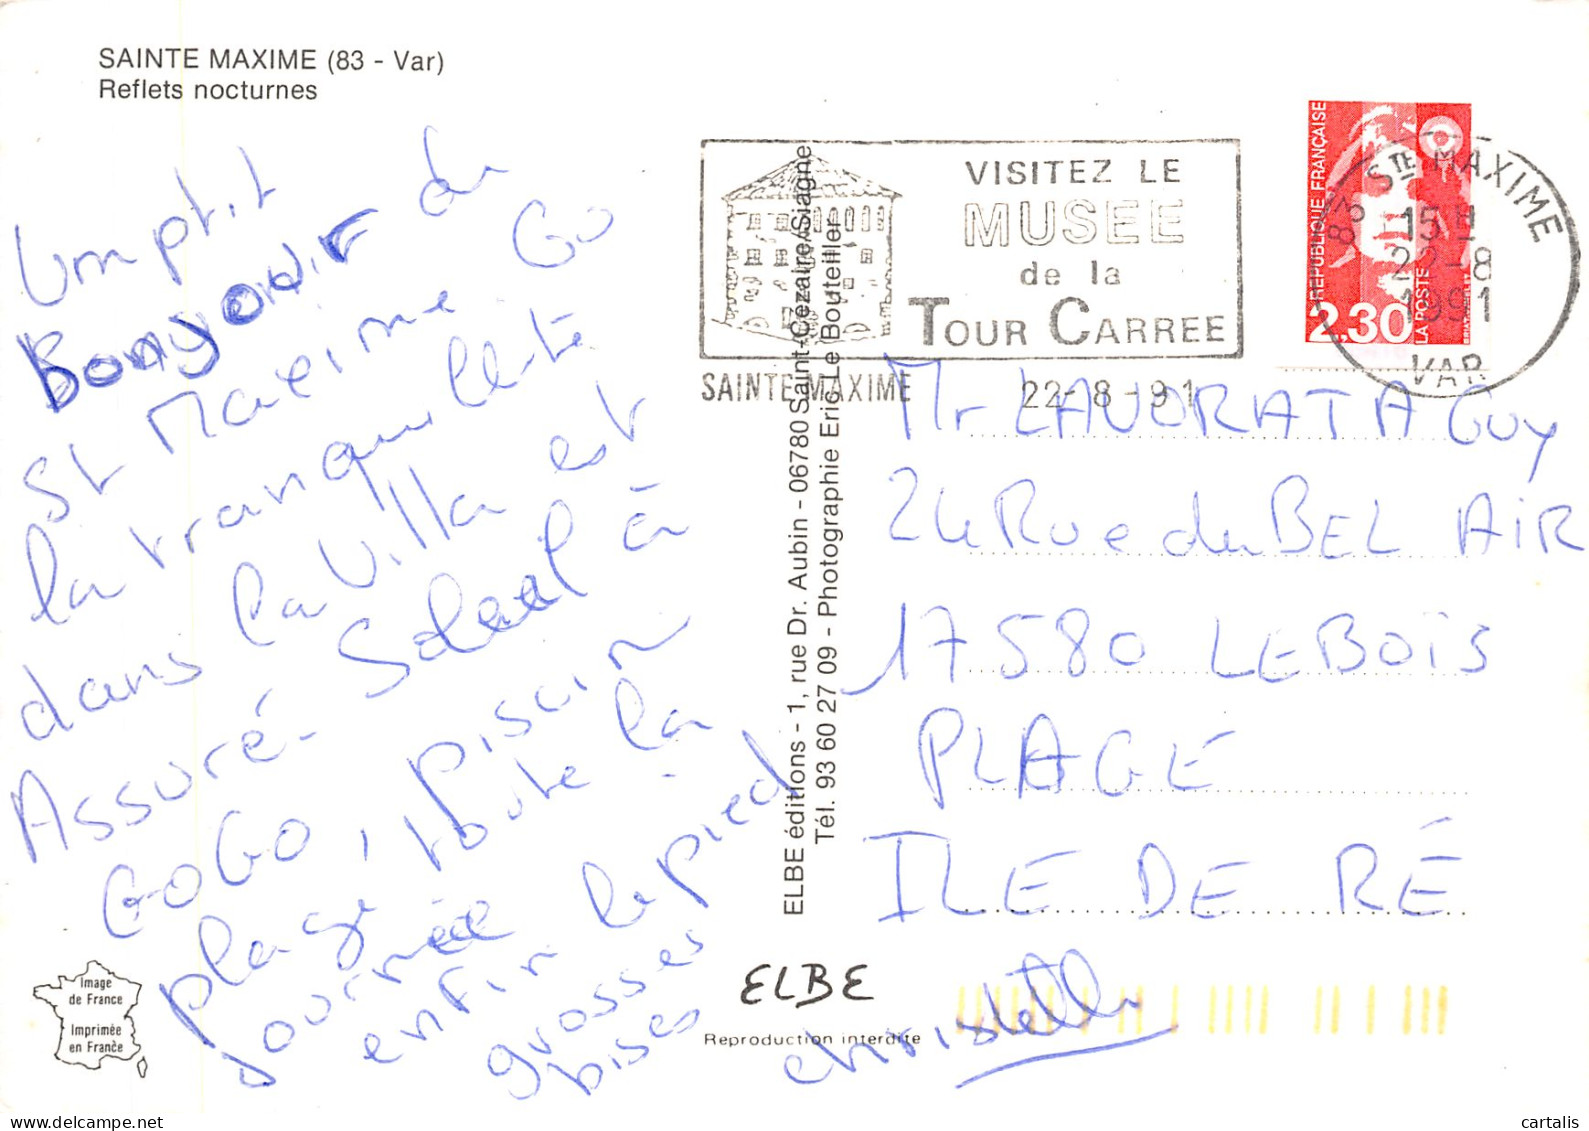 SAINTE MAXIME (83 - Var)
Reflets nocturnes
Um ptit
Bonjour du
St Maxime Go
la tranquilleté
dans la Villa est
Assuré - Soleil à
GoGo, piscin
plage, toute la
journée
enfin le pied
grosses
bises
christelle
VISITEZ LE
MUSEE
de la
TOUR CARREE
SAINTE MAXIME 22-8-91
REPUBLIQUE FRANÇAISE
LA POSTE
2,30
83 STE MAXIME
15 H
22-8
1991
VAR
Mr LAVORATA Guy
24 Rue du BEL AiR
17580 LE BOïS
PLAGE
ILE DE RÉ
ELBE éditions - 1, rue Dr. Aubin - 06780 Saint-Cézaire/Siagne
Tél. 93 60 27 09 - Photographie Eric Le Bouteiller
ELBE
Reproduction interdite
Image
de France
Imprimée
en France
delcampe.net
cartalis